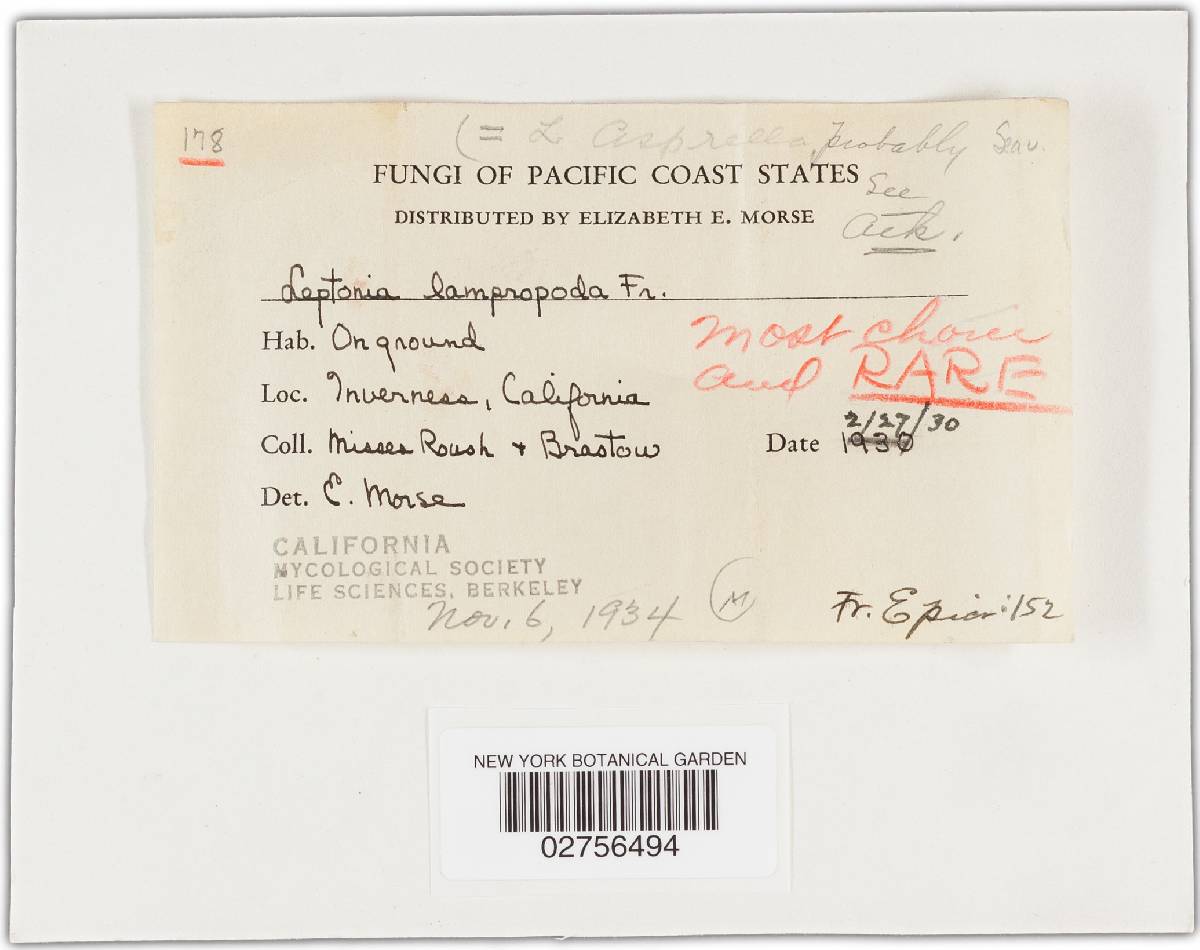 178
(= L Asprella, probably
See
Atk.
FUNGI OF PACIFIC COAST STATES
DISTRIBUTED BY ELIZABETH E. MORSE
Leptonia lampropoda Fr.
Hab. On ground
most choice
and RARE
Loc. Inverness, California
2/27/30
Coll. Misses Roush + Brastow Date 1930
Det. E. Morse
CALIFORNIA
MYCOLOGICAL SOCIETY
LIFE SCIENCES, BERKELEY
Nov. 6, 1934
M
Fr. Epicr: 152
NEW YORK BOTANICAL GARDEN
02756494